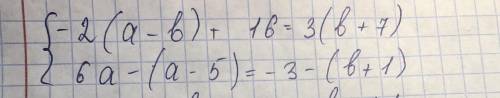 -2(a-b)+ 16=3(b+7)
6a-(a-5)=-3-(b+1)